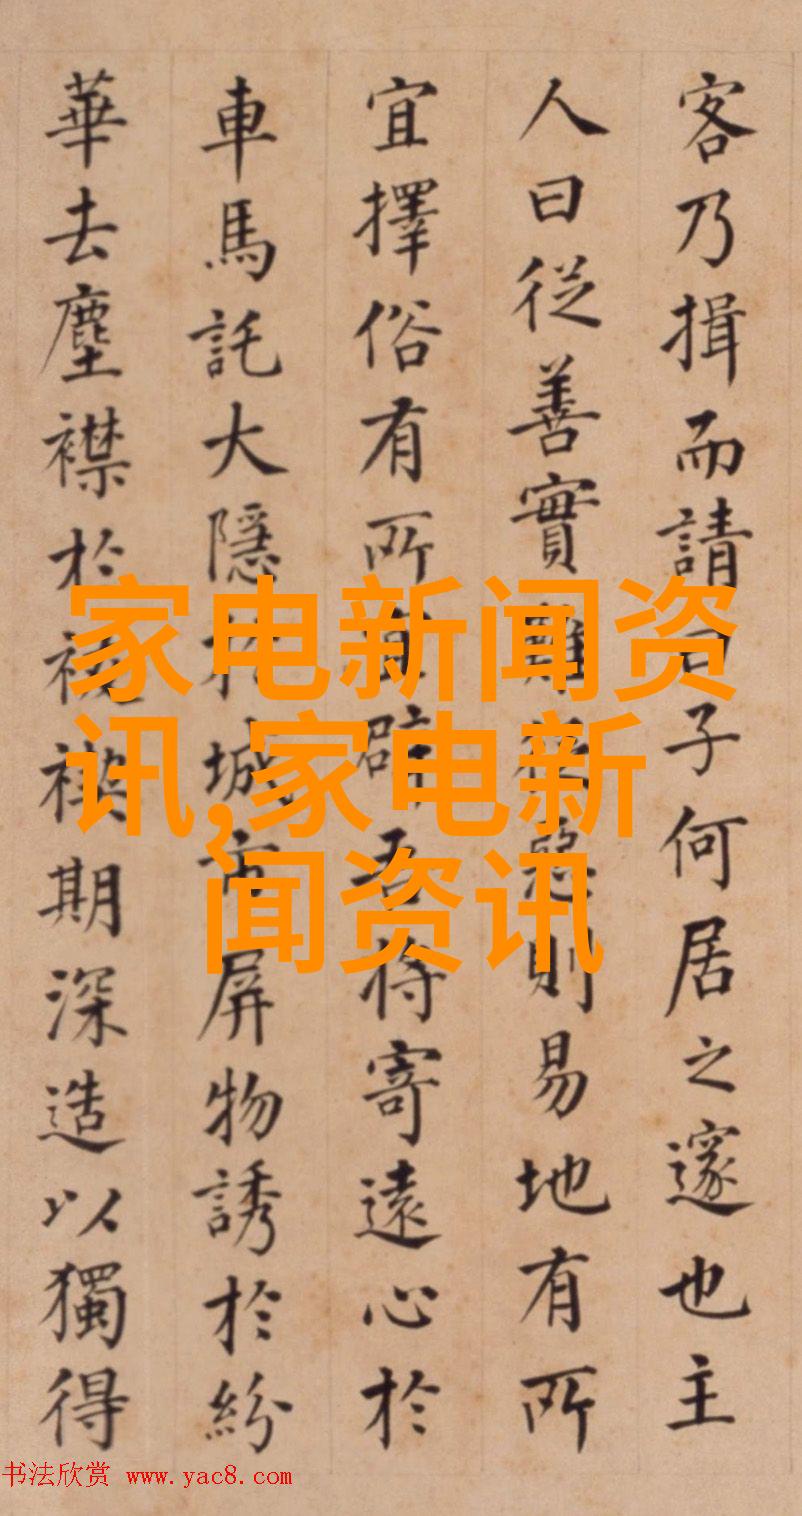 客乃揖而請曰子何居之邃也主
人曰從善實難從惡則易地有所
宜擇俗有所辟吾将寄遠心於
車馬託大隱於城市屏物誘於紛
華去塵襟於祓禊期深造以獨得
家电新闻资
讯,家电新
闻资讯
书法欣赏 www.yac8.com